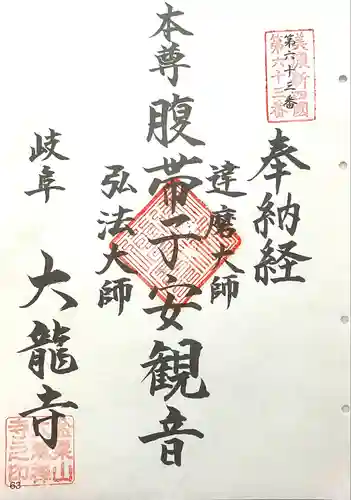 美濃新四國
第六十三番
第六十三番
奉納経
達磨大師
本尊 腹帯子安観音
弘法大師
岐阜
大龍寺
63